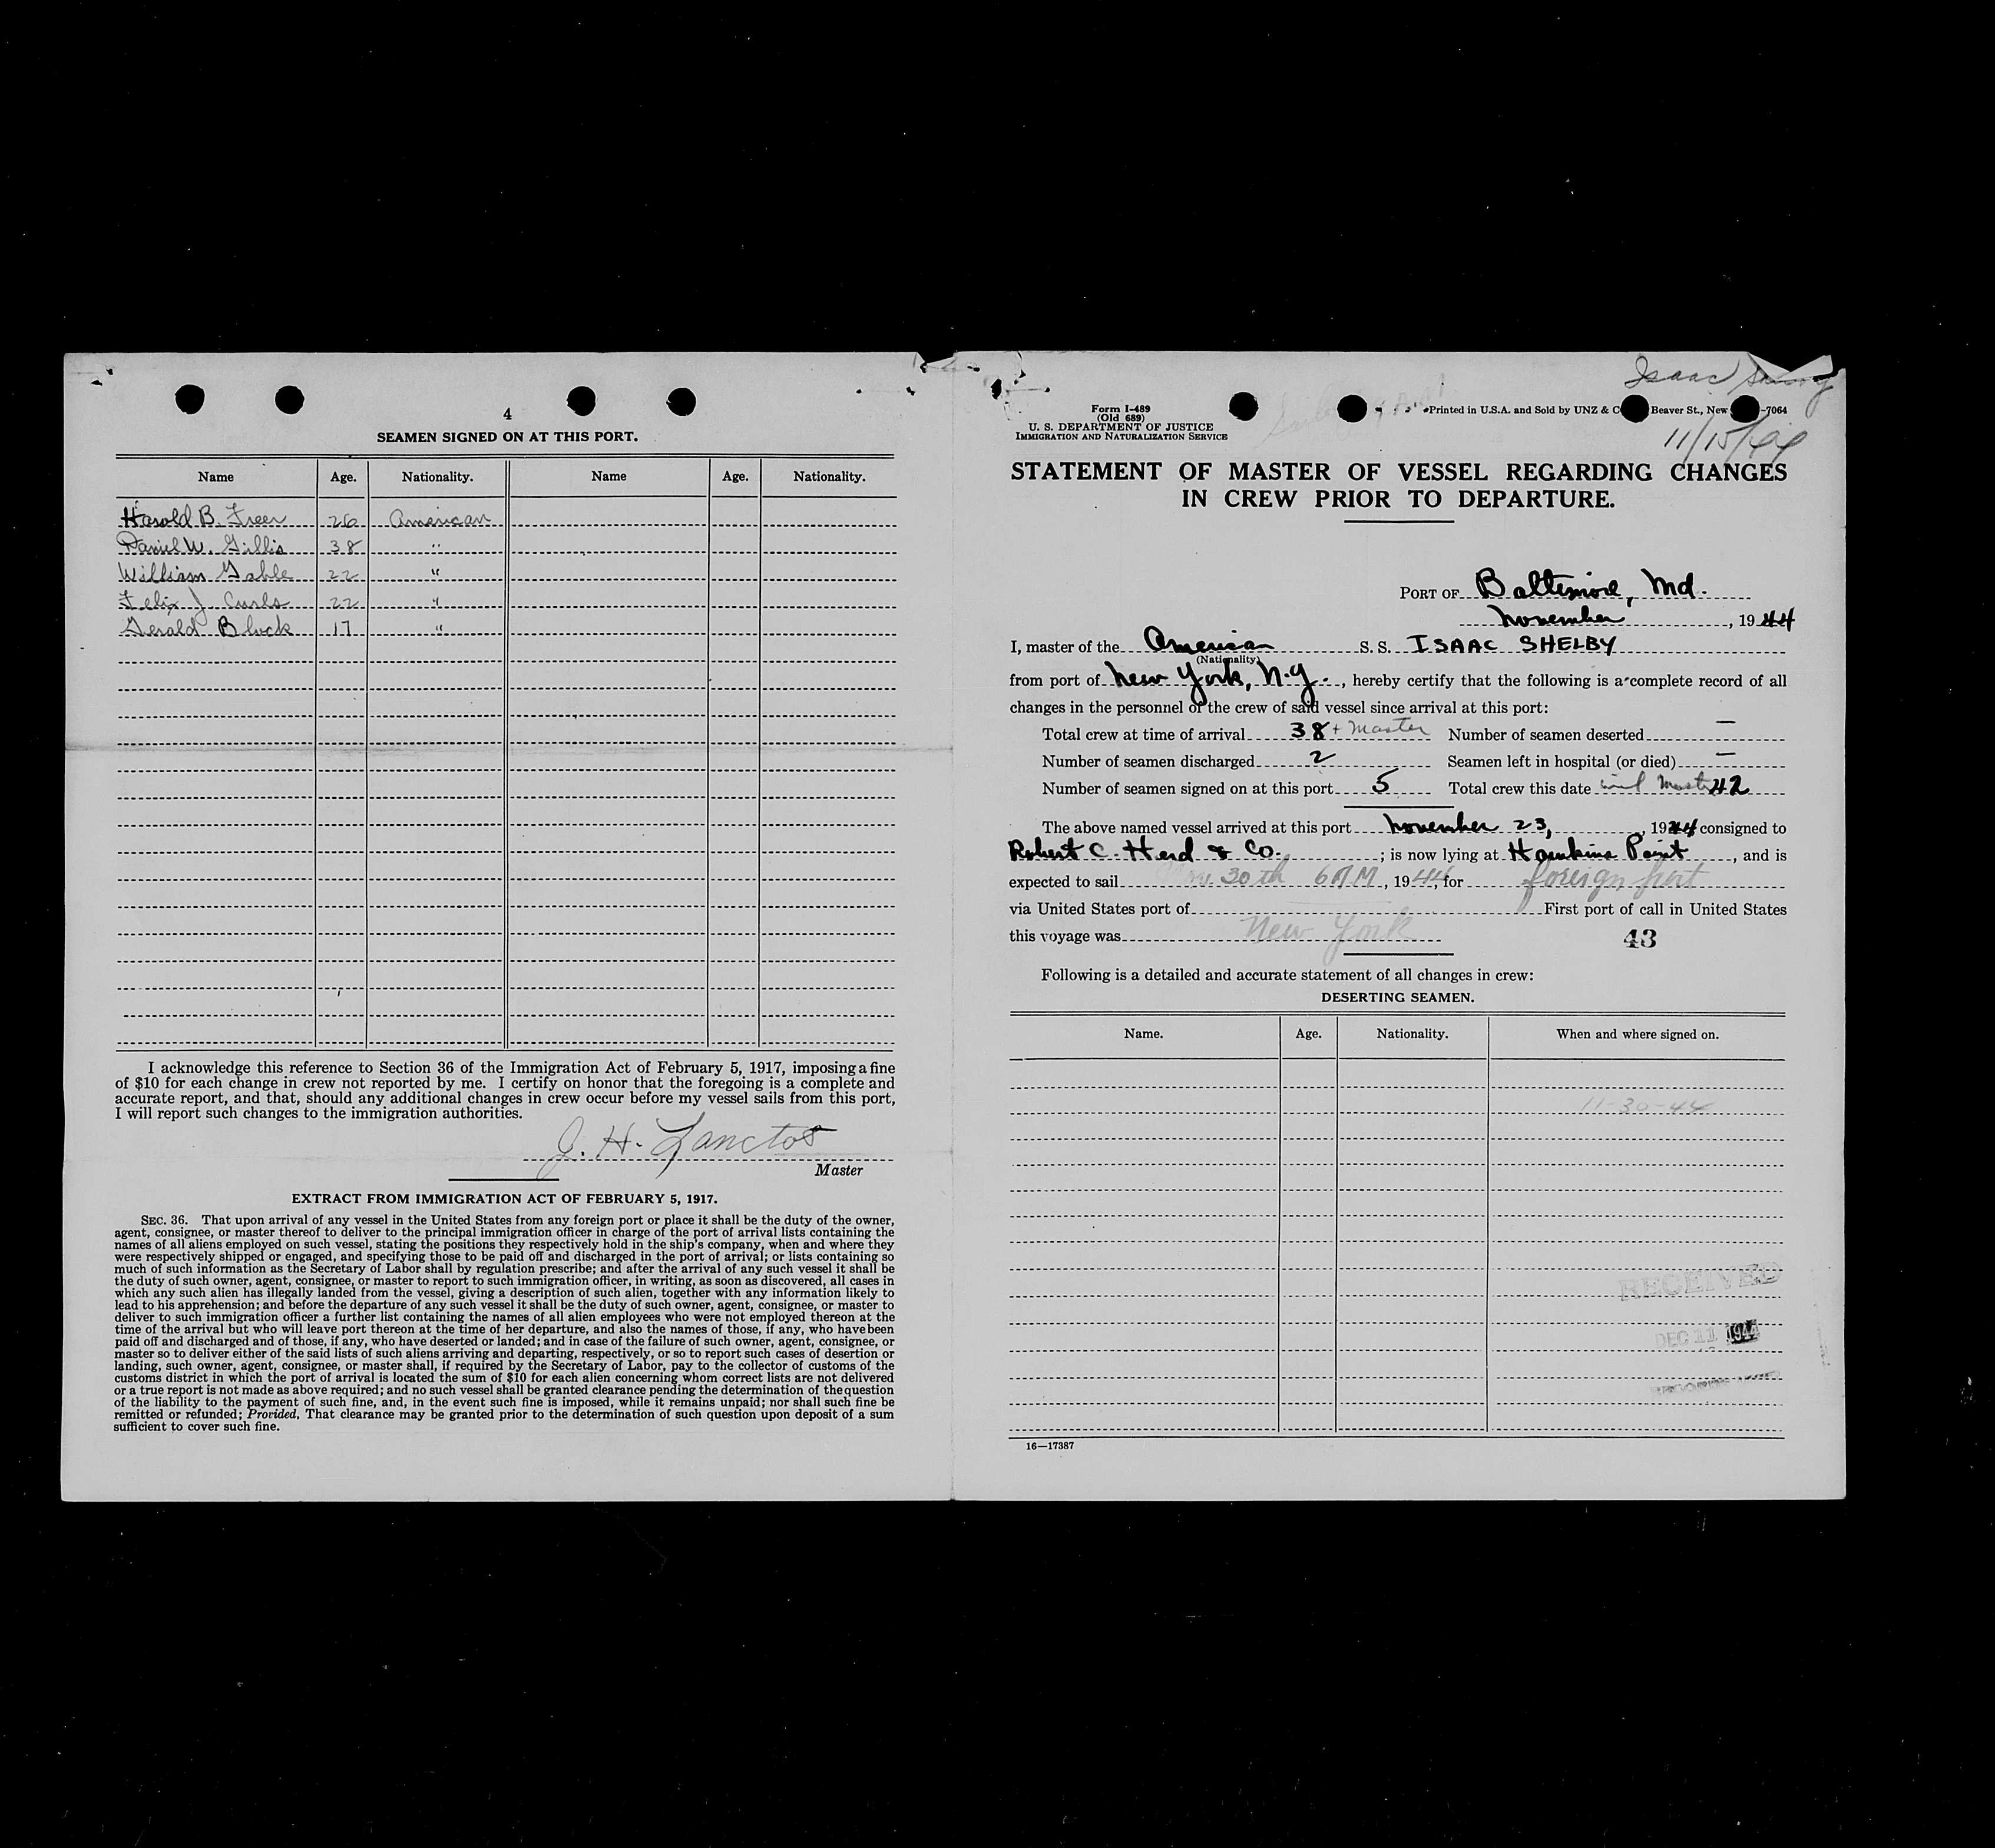 4
SEAMEN SIGNED ON AT THIS PORT.
Name Age. Nationality. Name Age. Nationality.
Harold B. Freer 26 American
Daniel W. Gillis 38 "
William Gable 22 "
Felix J Curls 22 "
Gerald Block 17 "
I acknowledge this reference to Section 36 of the Immigration Act of February 5, 1917, imposing a fine
of $10 for each change in crew not reported by me. I certify on honor that the foregoing is a complete and
accurate report, and that, should any additional changes in crew occur before my vessel sails from this port,
I will report such changes to the immigration authorities.
J. H. Lanctos
Master
EXTRACT FROM IMMIGRATION ACT OF FEBRUARY 5, 1917.
SEC. 36. That upon arrival of any vessel in the United States from any foreign port or place it shall be the duty of the owner,
agent, consignee, or master thereof to deliver to the principal immigration officer in charge of the port of arrival lists containing the
names of all aliens employed on such vessel, stating the positions they respectively hold in the ship's company, when and where they
were respectively shipped or engaged, and specifying those to be paid off and discharged in the port of arrival; or lists containing so
much of such information as the Secretary of Labor shall by regulation prescribe; and after the arrival of any such vessel it shall be
the duty of such owner, agent, consignee, or master to report to such immigration officer, in writing, as soon as discovered, all cases in
which any such alien has illegally landed from the vessel, giving a description of such alien, together with any information likely to
lead to his apprehension; and before the departure of any such vessel it shall be the duty of such owner, agent, consignee, or master to
deliver to such immigration officer a further list containing the names of all alien employees who were not employed thereon at the
time of the arrival but who will leave port thereon at the time of her departure, and also the names of those, if any, who have been
paid off and discharged and of those, if any, who have deserted or landed; and in case of the failure of such owner, agent, consignee, or
master so to deliver either of the said lists of such aliens arriving and departing, respectively, or so to report such cases of desertion or
landing, such owner, agent, consignee, or master shall, if required by the Secretary of Labor, pay to the collector of customs of the
customs district in which the port of arrival is located the sum of $10 for each alien concerning whom correct lists are not delivered
or a true report is not made as above required; and no such vessel shall be granted clearance pending the determination of the question
of the liability to the payment of such fine, and, in the event such fine is imposed, while it remains unpaid; nor shall such fine be
remitted or refunded; Provided, That clearance may be granted prior to the determination of such question upon deposit of a sum
sufficient to cover such fine.
Isaac
Form I-489
(Old 689)
U. S. DEPARTMENT OF JUSTICE
IMMIGRATION AND NATURALIZATION SERVICE
Printed in U.S.A. and Sold by UNZ & C Beaver St., New -7064
11/15/44
STATEMENT OF MASTER OF VESSEL REGARDING CHANGES
IN CREW PRIOR TO DEPARTURE.
PORT OF Baltimore, Md.
November, 1944
I, master of the American S. S. ISAAC SHELBY
(Nationality)
from port of New York, N.Y., hereby certify that the following is a complete record of all
changes in the personnel of the crew of said vessel since arrival at this port:
Total crew at time of arrival 38 + Master Number of seamen deserted —
Number of seamen discharged 2 Seamen left in hospital (or died) —
Number of seamen signed on at this port 5 Total crew this date incl Master 42
The above named vessel arrived at this port November 23, 1944 consigned to
Robert C. Herd & Co. ; is now lying at Hawkins Point, and is
expected to sail Nov. 30th 6AM, 1944, for foreign port
via United States port of First port of call in United States
this voyage was New York
43
Following is a detailed and accurate statement of all changes in crew:
DESERTING SEAMEN.
Name. Age. Nationality. When and where signed on.
11-30-44
RECEIVED
DEC 11 1944
16—17387